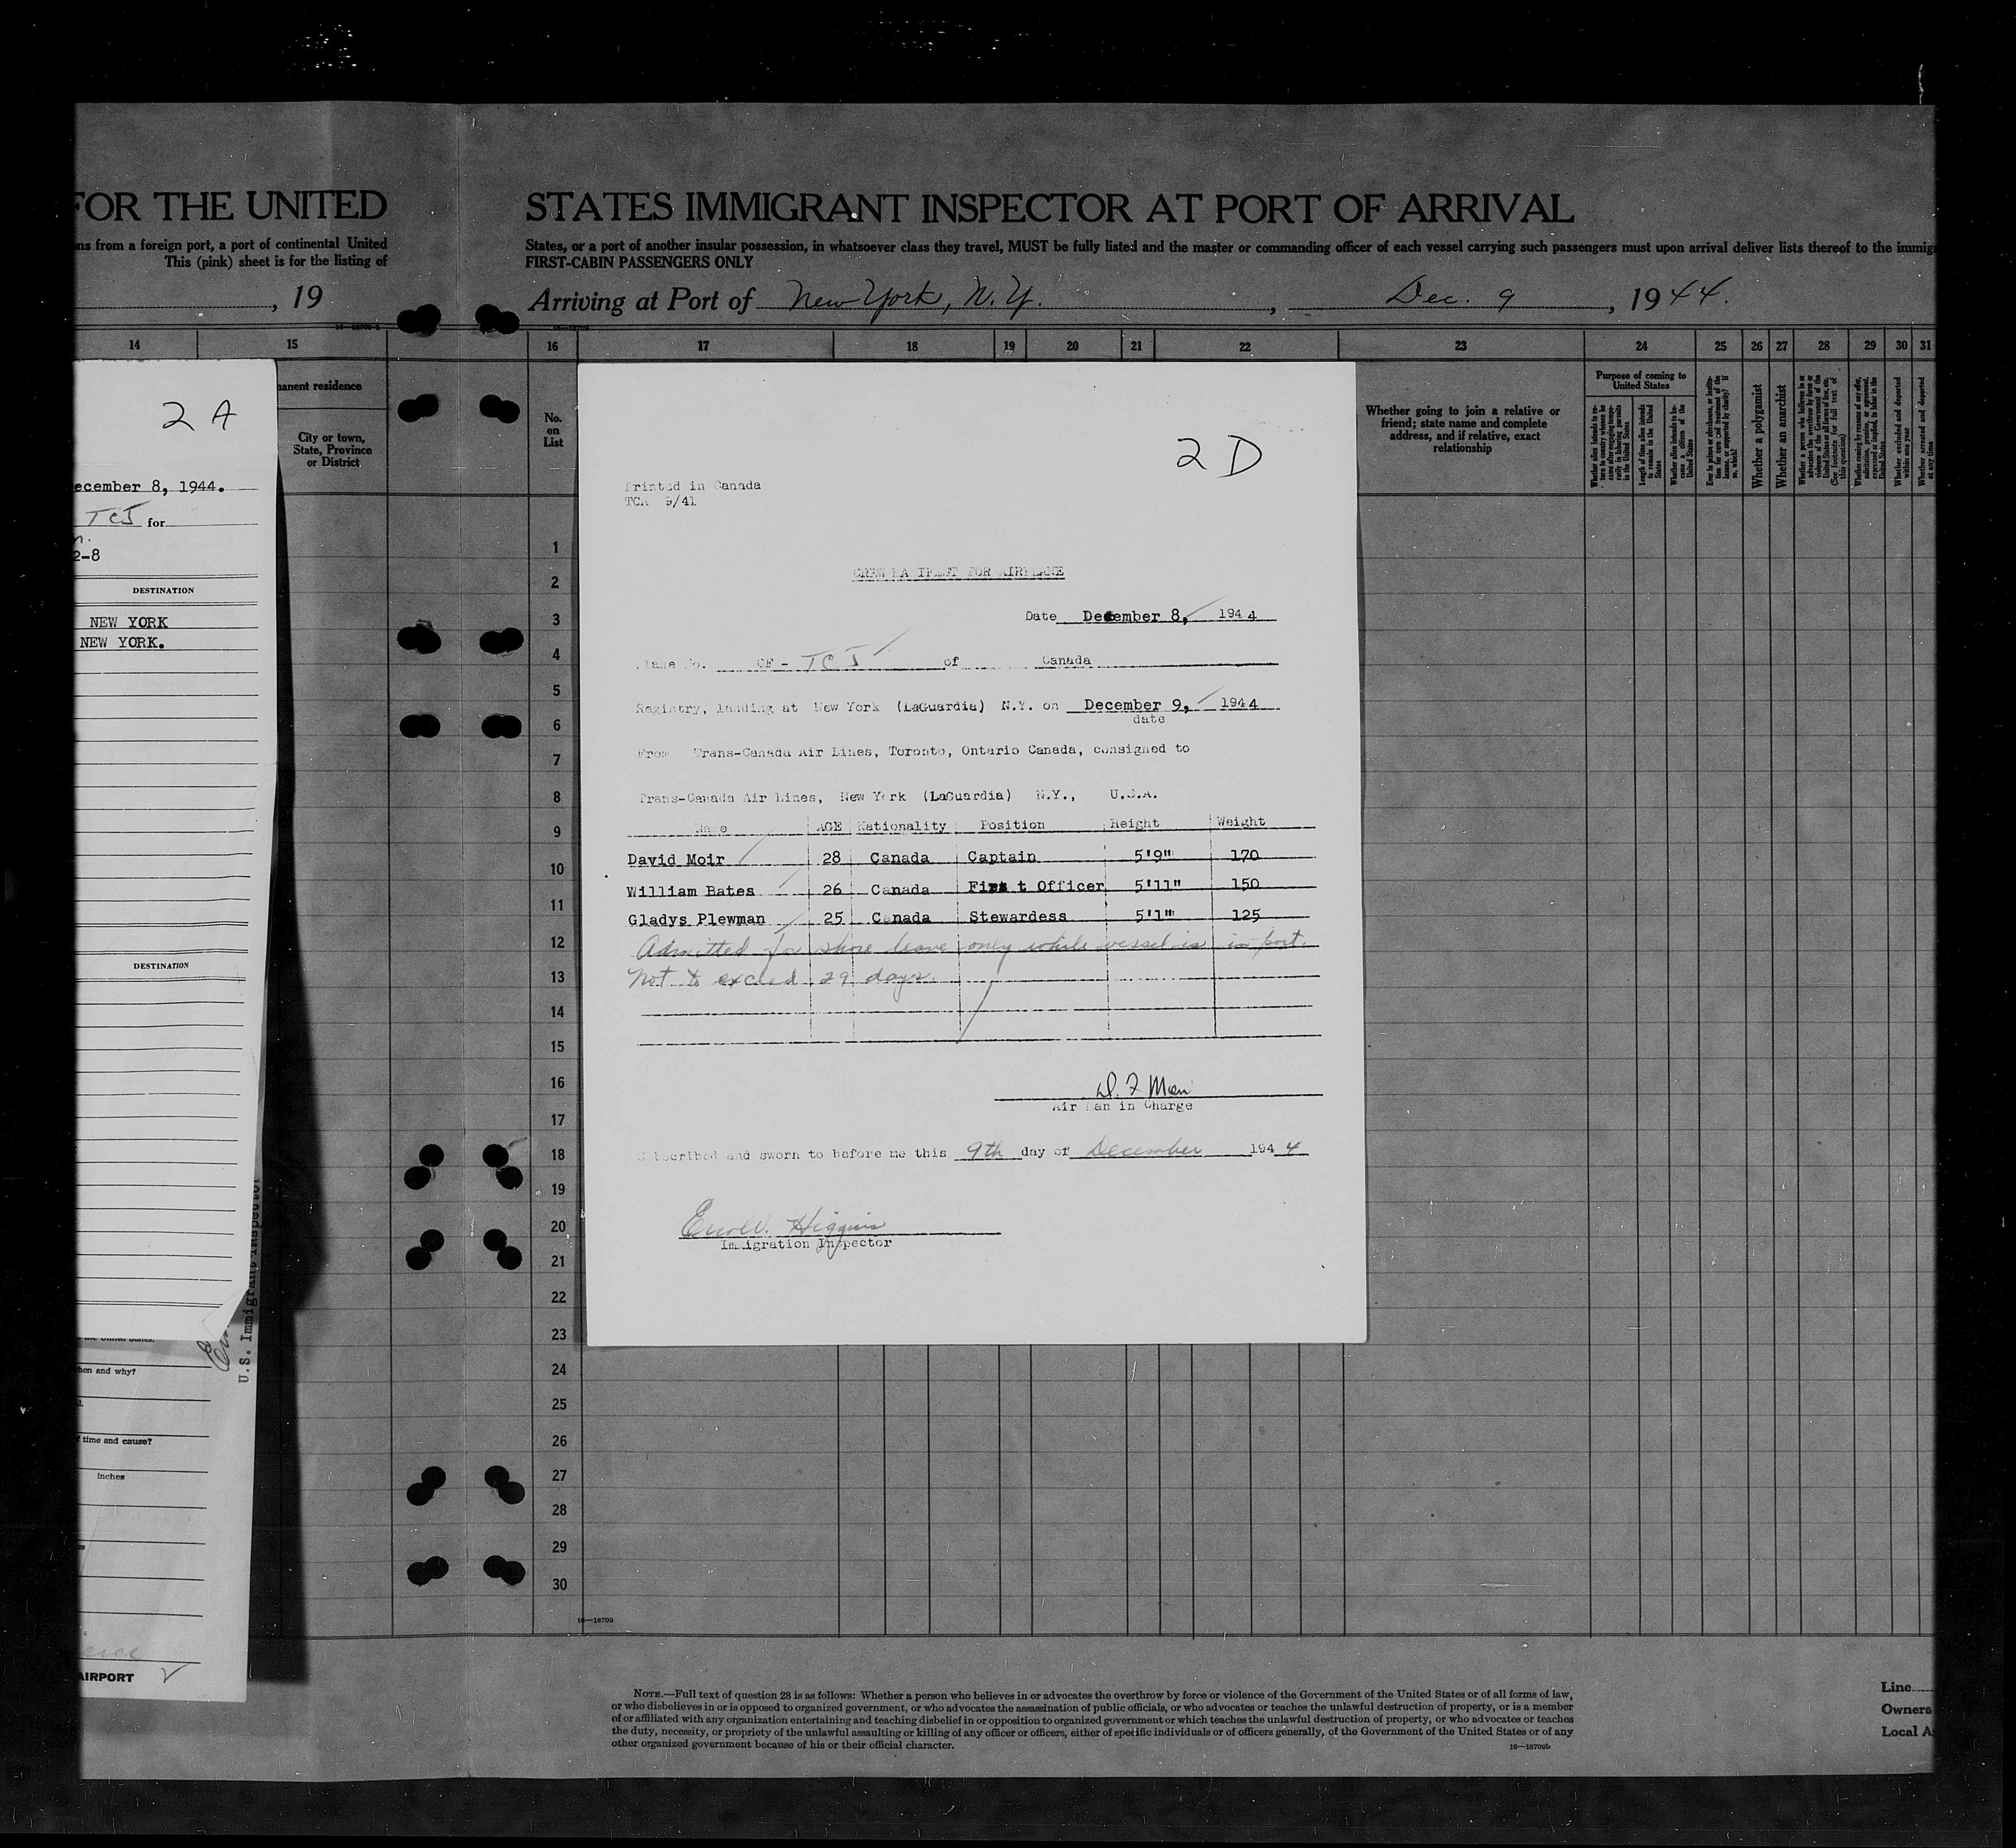 FOR THE UNITED STATES IMMIGRANT INSPECTOR AT PORT OF ARRIVAL
ns from a foreign port, a port of continental United States, or a port of another insular possession, in whatsoever class they travel, MUST be fully listed and the master or commanding officer of each vessel carrying such passengers must upon arrival deliver lists thereof to the immig
This (pink) sheet is for the listing of FIRST-CABIN PASSENGERS ONLY
, 19
Arriving at Port of New York, N.Y. , Dec. 9 , 1944.
14 15 16 17 18 19 20 21 22 23 24 25 26 27 28 29 30 31
2 A
ecember 8, 1944.
TCJ for
2-8
DESTINATION
NEW YORK
NEW YORK.
DESTINATION
the United States.
hen and why?
time and cause?
inches
AIRPORT
U.S. Immigrant Inspector
anent residence
City or town,
State, Province
or District
No.
on
List
Whether going to join a relative or
friend; state name and complete
address, and if relative, exact
relationship
Purpose of coming to
United States
Whether a polygamist
Whether an anarchist
Whether excluded and deported
within one year
Whether arrested and deported
at any time
1
2
3
4
5
6
7
8
9
10
11
12
13
14
15
16
17
18
19
20
21
22
23
24
25
26
27
28
29
30
2 D
Printed in Canada
TCA 9/41
CREW MANIFEST FOR AIRPLANE
Date December 8, 1944
Plane No. CF - TCJ of Canada
Registry, landing at New York (LaGuardia) N.Y. on December 9, 1944
date
From Trans-Canada Air Lines, Toronto, Ontario Canada, consigned to
Trans-Canada Air Lines, New York (LaGuardia) N.Y., U.S.A.
Name AGE Nationality Position Height Weight
David Moir 28 Canada Captain 5'9" 170
William Bates 26 Canada First Officer 5'11" 150
Gladys Plewman 25 Canada Stewardess 5'1" 125
Admitted for shore leave only while vessel is in port.
Not to exceed 29 days.
D. F Moir
Air Man in Charge
Subscribed and sworn to before me this 9th day of December 1944
Errol W. Higgins
Immigration Inspector
16—18709
NOTE.—Full text of question 28 is as follows: Whether a person who believes in or advocates the overthrow by force or violence of the Government of the United States or of all forms of law,
or who disbelieves in or is opposed to organized government, or who advocates the assassination of public officials, or who advocates or teaches the unlawful destruction of property, or is a member
of or affiliated with any organization entertaining and teaching disbelief in or opposition to organized government or which teaches the unlawful destruction of property, or who advocates or teaches
the duty, necessity, or propriety of the unlawful assaulting or killing of any officer or officers, either of specific individuals or of officers generally, of the Government of the United States or of any
other organized government because of his or their official character.
16—18709b
Line
Owners
Local A